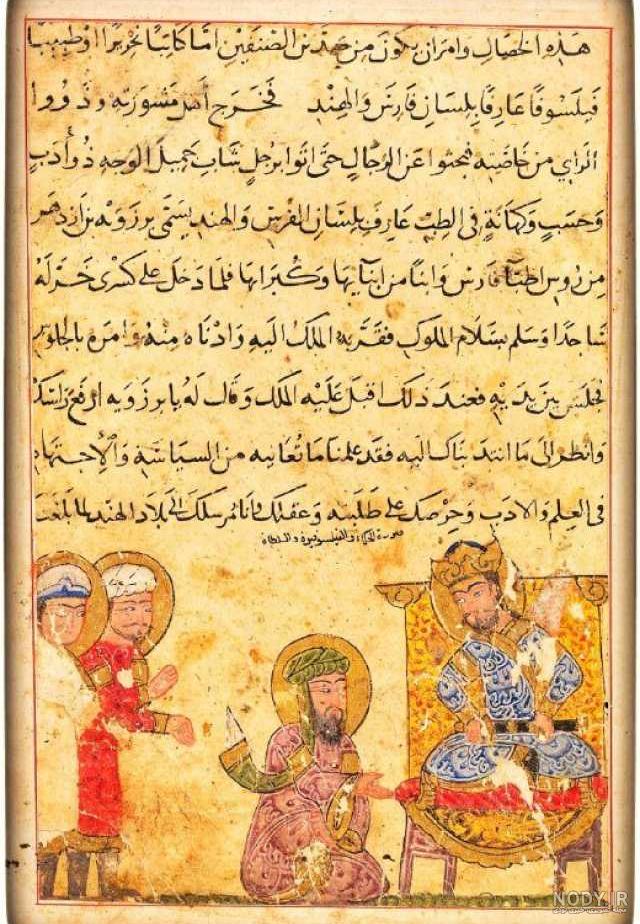 هذه الخصال وامر ان يكون من هذين الصنفين اما كاتبا نحريرا او طبيبا
فيلسوفا عارفا بلسان فارس والهند فخرج أهل مشورته وذووا
الراي من خاصته فبحثوا عن الرجال حتى اتوا برجل شاب جميل الوجه ذو أدب
وحسب وكهانة في الطب عارف بلسان الفرس والهند يسمى برزويه بن ازدهر
من روس اطباء فارس وابنا من ابنايها وكبرايها فلما دخل على كسرى خر له
ساجدا وسلم بسلام الملوك فقربه الملك اليه وادناه منه وامره بالجلوس
فجلس بين يديه فعند ذلك اقبل عليه الملك وقال له يا برزويه ارفع راسك
وانظر الى ما انتدبناك اليه فقد علمنا ما تعانيه من السياسة والاجتهاد
في العلم والادب وحرصك على طلبته وعقلك وانا مرسلك الى بلاد الهند لما بلغنا
صورة الحكماء والفيلسوف برزويه
NODY.IR